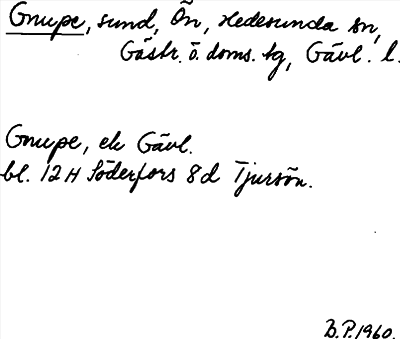 Gnupe, sund, Ön, Hedesunda sn,
Gästr. ö. doms. tg, Gävl. l.
Gnupe, ek Gävl.
bl. 12 H Söderfors 8d Tjursön.
B.P. 1960.